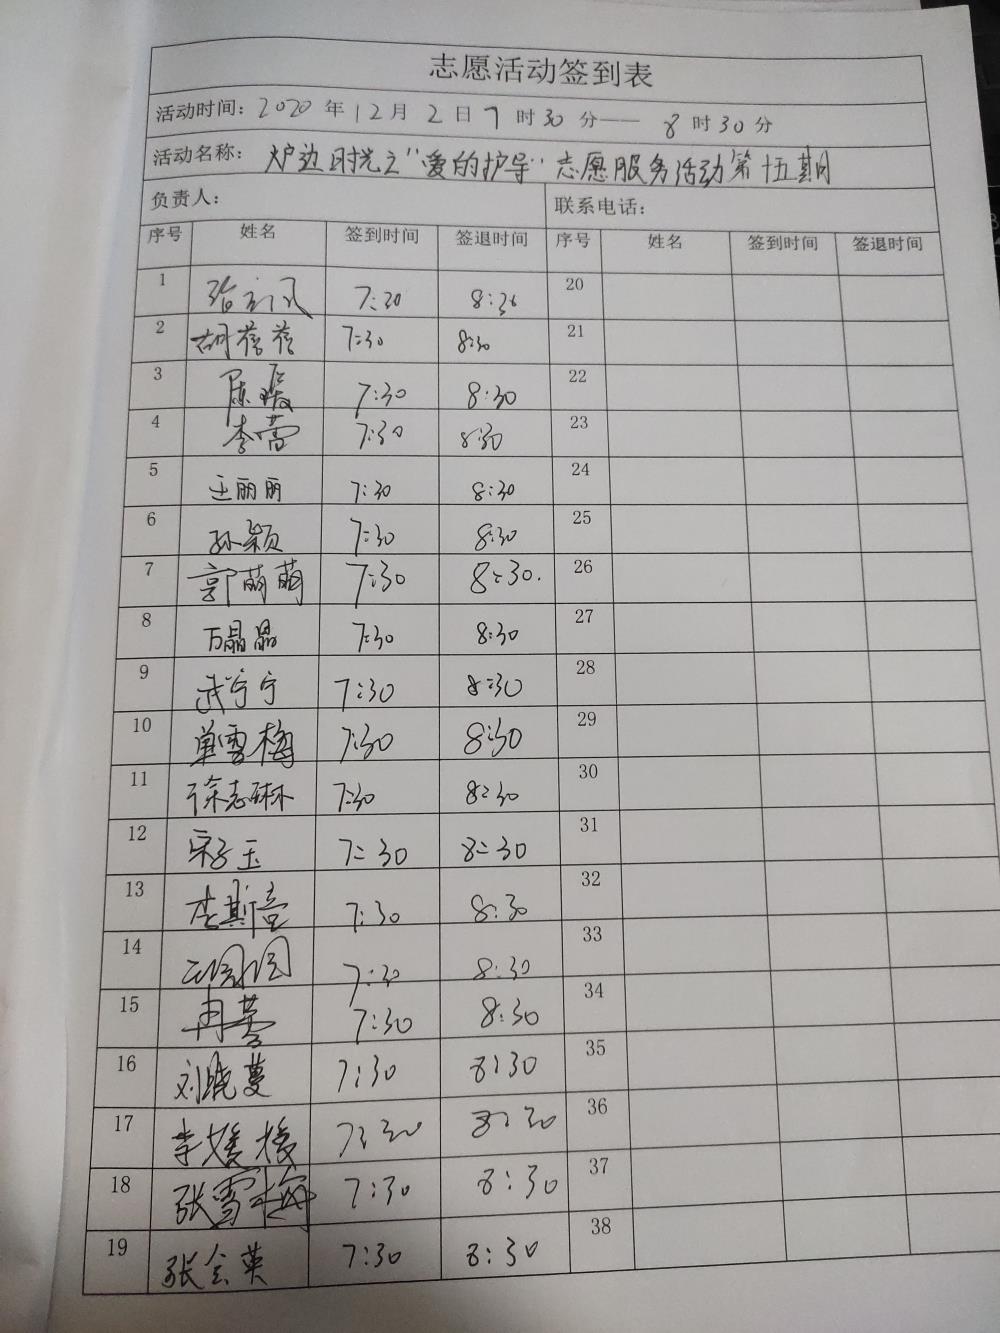 志愿活动签到表
活动时间: 2020 年 12 月 2 日 7 时 30 分—— 8 时 30 分
活动名称: 炉边时光之"爱的护导"志愿服务活动第十五期
负责人: 联系电话:
序号 姓名 签到时间 签退时间 序号 姓名 签到时间 签退时间
1 7:30 8:30 20
2 胡蓓蓓 7:30 8:30 21
3 陈瑷 7:30 8:30 22
4 李蕾 7:30 8:30 23
5 王丽丽 7:30 8:30 24
6 孙颖 7:30 8:30 25
7 郭萌萌 7:30 8:30. 26
8 万晶晶 7:30 8:30 27
9 武宁宁 7:30 8:30 28
10 单雪梅 7:30 8:30 29
11 徐志琳 7:30 8:30 30
12 宋子玉 7:30 8:30 31
13 李斯音 7:30 8:30 32
14 7:30 8:30 33
15 冉蕾 7:30 8:30 34
16 刘晓蔓 7:30 8:30 35
17 李媛媛 7:30 8:30 36
18 张雪梅 7:30 8:30 37
19 张会英 7:30 8:30 38